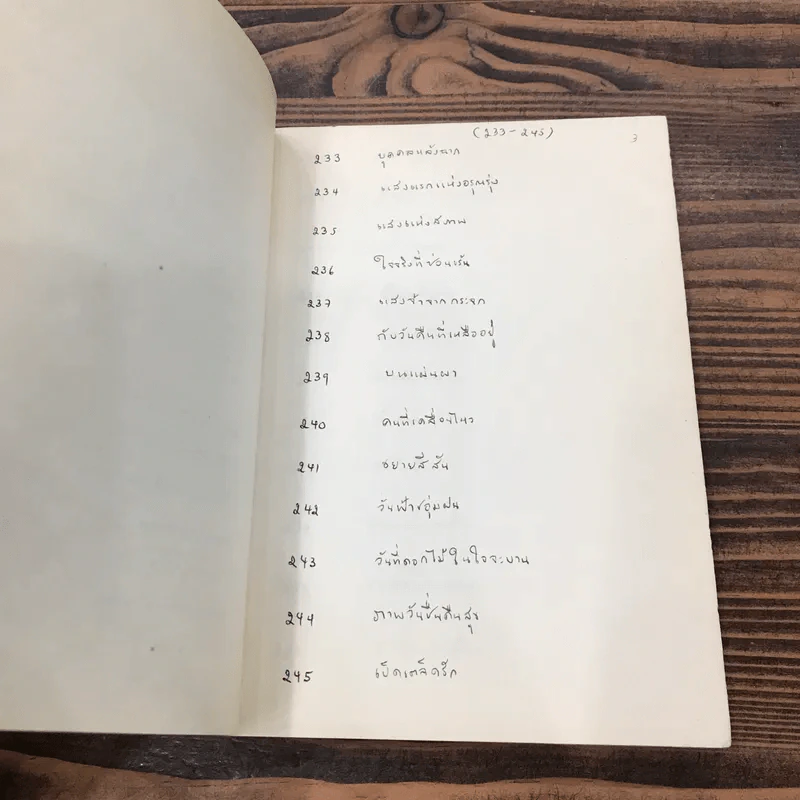 (233-245)
3
233 บุคคลหลังฉาก
234 แสงแรกแห่งอรุณรุ่ง
235 แสงแห่งสภาพ
236 ใจจริงที่ซ่อนเร้น
237 แสงจ้าจากกระจก
238 กับวันคืนที่เหลืออยู่
239 บนแผ่นผา
240 คนที่เคลื่อนไหว
241 ขยายสีสัน
242 วันฟ้าชอุ่มฝน
243 วันที่ดอกไม้ในใจจะบาน
244 ภาพวันชื่นคืนสุข
245 เบ็ดเตล็ดรัก